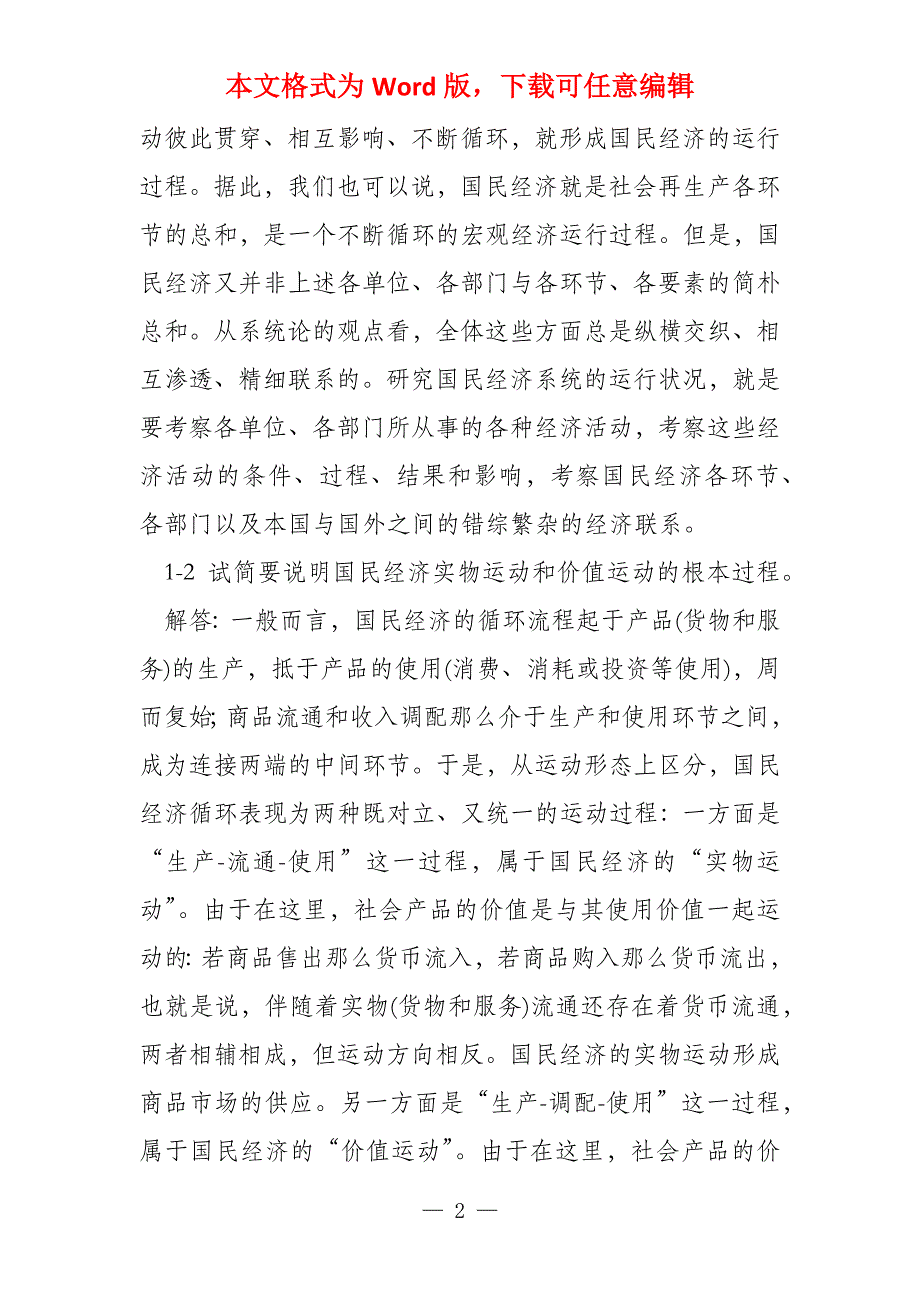 本文格式为 Word 版，下载可任意编辑
动彼此贯穿、相互影响、不断循环，就形成国民经济的运行
过程。据此，我们也可以说，国民经济就是社会再生产各环
节的总和，是一个不断循环的宏观经济运行过程。但是，国
民经济又并非上述各单位、各部门与各环节、各要素的简朴
总和。从系统论的观点看，全体这些方面总是纵横交织、相
互渗透、精细联系的。研究国民经济系统的运行状况，就是
要考察各单位、各部门所从事的各种经济活动，考察这些经
济活动的条件、过程、结果和影响，考察国民经济各环节、
各部门以及本国与国外之间的错综繁杂的经济联系。
1-2 试简要说明国民经济实物运动和价值运动的根本过程。
解答: 一般而言，国民经济的循环流程起于产品(货物和服
务)的生产，抵于产品的使用(消费、消耗或投资等使用)，周
而复始; 商品流通和收入调配那么介于生产和使用环节之间，
成为连接两端的中间环节。于是，从运动形态上区分，国民
经济循环表现为两种既对立、又统一的运动过程：一方面是
“生产-流通-使用”这一过程，属于国民经济的“实物运
动”。由于在这里，社会产品的价值是与其使用价值一起运
动的: 若商品售出那么货币流入，若商品购入那么货币流出，
也就是说，伴随着实物(货物和服务)流通还存在着货币流通，
两者相辅相成，但运动方向相反。国民经济的实物运动形成
商品市场的供应。另一方面是“生产-调配-使用”这一过程，
属于国民经济的“价值运动”。由于在这里，社会产品的价
— 2 —